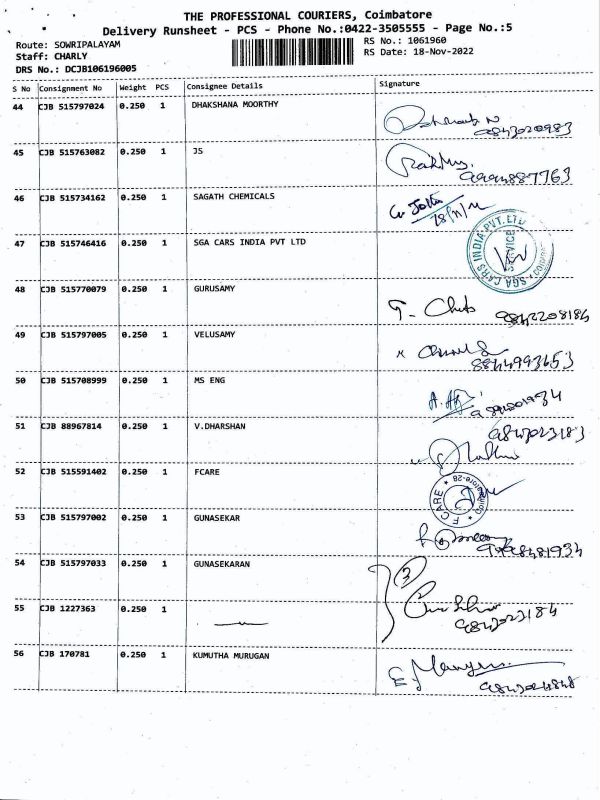 THE PROFESSIONAL COURIERS, Coimbatore
Delivery Runsheet - PCS - Phone No.:0422-3505555 - Page No.:5
Route: SOWRIPALAYAM
RS No.: 1061960
Staff: CHARLY
RS Date: 18-Nov-2022
DRS No.: DCJB106196005
S No Consignment No Weight PCS Consignee Details Signature
44 CJB 515797024 0.250 1 DHAKSHANA MOORTHY
9843020983
45 CJB 515763082 0.250 1 JS
9994887763
46 CJB 515734162 0.250 1 SAGATH CHEMICALS
18/11/22
47 CJB 515746416 0.250 1 SGA CARS INDIA PVT LTD
SGA CARS INDIA PVT. LTD
SERVICE
48 CJB 515770079 0.250 1 GURUSAMY
9842208184
49 CJB 515797005 0.250 1 VELUSAMY
50 CJB 515708999 0.250 1 MS ENG
51 CJB 88967814 0.250 1 V.DHARSHAN
9843023183
52 CJB 515591402 0.250 1 FCARE
F CARE
Coimbatore-28
53 CJB 515797002 0.250 1 GUNASEKAR
54 CJB 515797033 0.250 1 GUNASEKARAN
3
55 CJB 1227363 0.250 1
9843023184
56 CJB 170781 0.250 1 KUMUTHA MURUGAN
9843024848